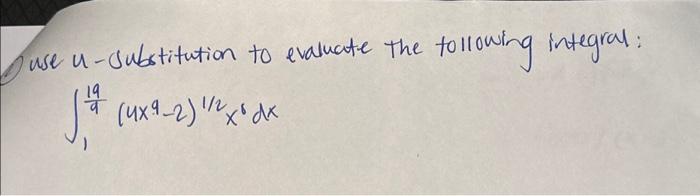 use u-substitution to evaluate the following integral:
∫₁^(19/9) (4x⁹-2)^(1/2) x⁸ dx